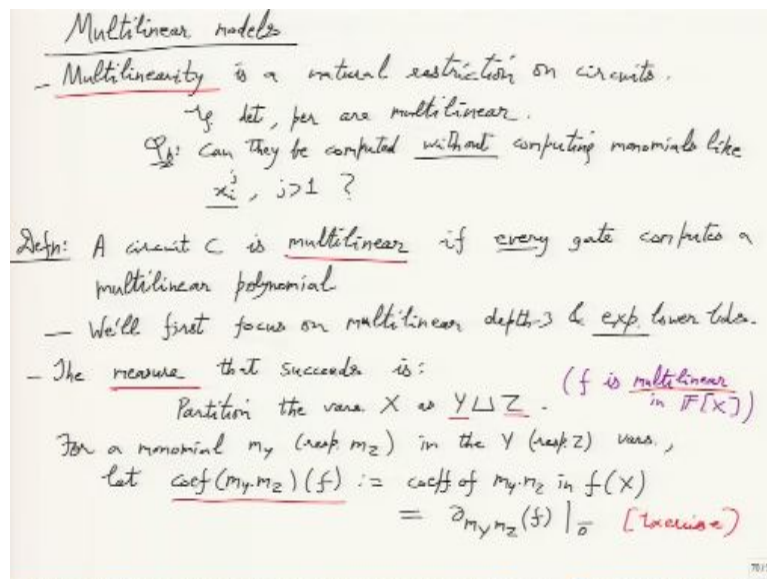 Multilinear models
- Multilinearity is a natural restriction on circuits.
Eg. det, per are multilinear.
Qn: Can they be computed without computing monomials like
x_i^j, j>1 ?
Defn: A circuit C is multilinear if every gate computes a
multilinear polynomial
- We'll first focus on multilinear depth-3 & exp. lower bds.
- The measure that succeeds is:
(f is multilinear
in F[X])
Partition the vars. X as Y⊔Z.
For a monomial m_Y (resp. m_Z) in the Y (resp. Z) vars.,
let coef(m_Y.m_Z)(f) := coeff of m_Y.m_Z in f(X)
= ∂_{m_Y m_Z}(f)|_{0̄} [Exercise)